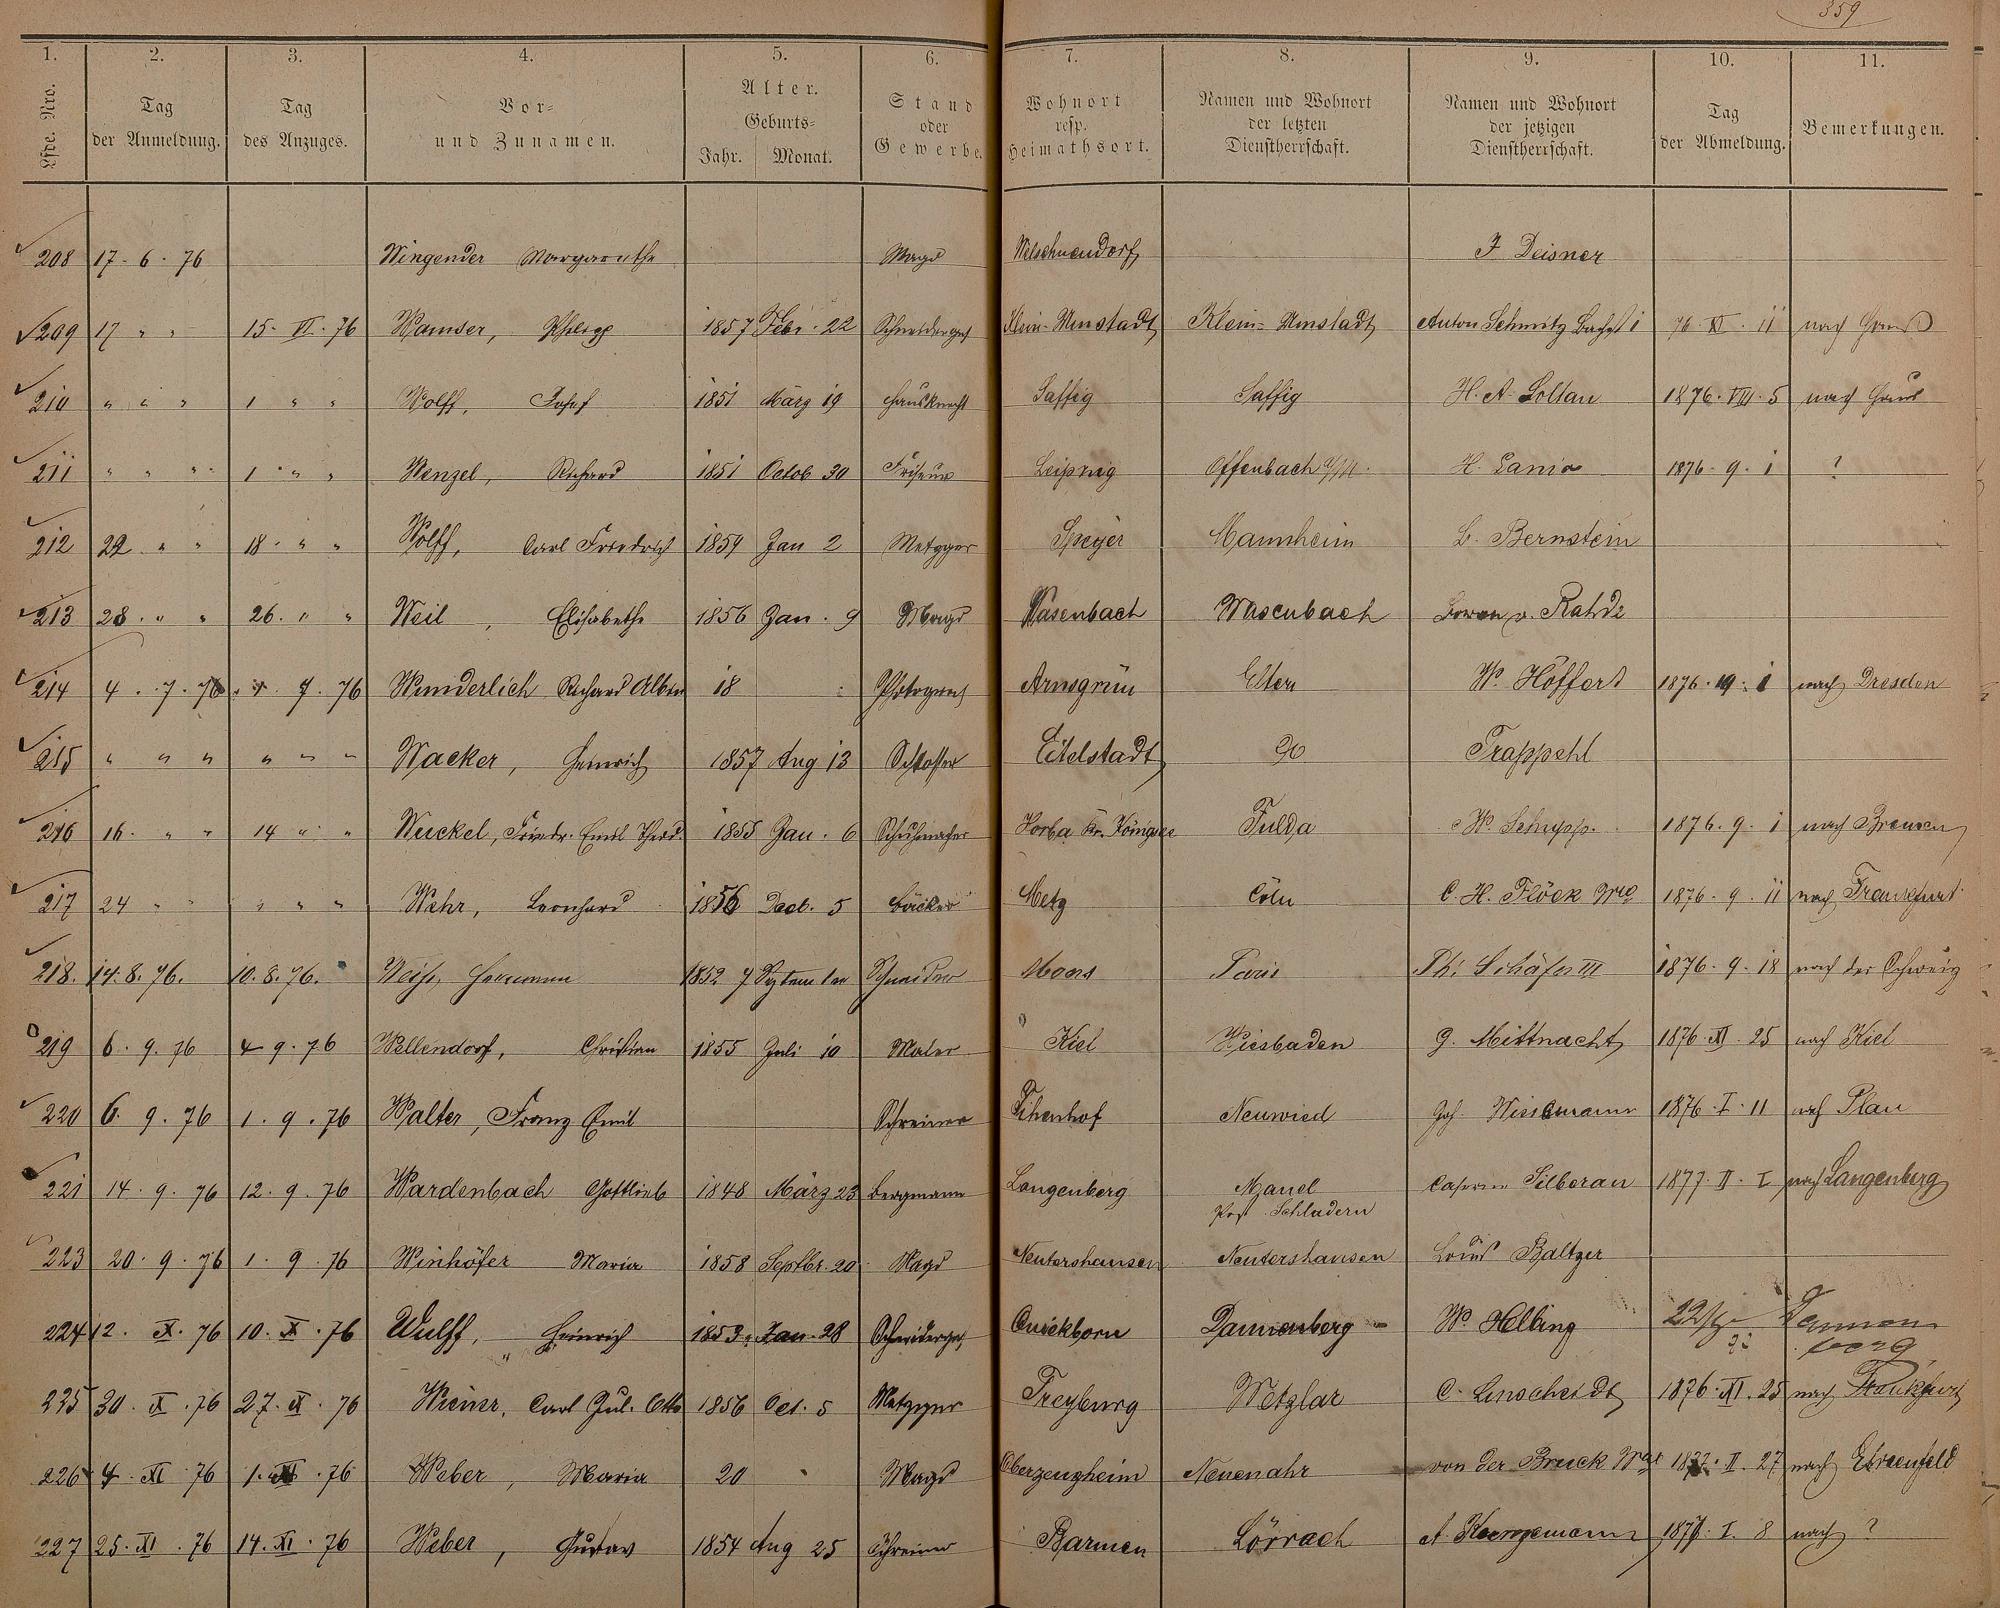 359
1. 2. 3. 4. 5. 6. 7. 8. 9. 10. 11.
Lfde. Nro. Tag der Anmeldung. Tag des Anzuges. Vor- und Zunamen. Alter. Geburts- Jahr. Monat. Stand oder Gewerbe. Wohnort resp. Heimathsort. Namen und Wohnort der letzten Dienstherrschaft. Namen und Wohnort der jetzigen Dienstherrschaft. Tag der Abmeldung. Bemerkungen.
208 17. 6. 76 Wingender Margarethe Magd Welschneudorf J Deisner
209 17 " " 15. VI. 76 Wamser, Philipp 1857 Febr. 22 Schneiderges Klein-Umstadt Klein-Umstadt Anton Schmitz 76. XI. 11 nach
210 " " " 1 " " Wolff, Josef 1851 März 19 Hausknecht Saffig Saffig H. A. Soltau 1876. VIII. 5 nach Haus
211 " " " 1 " " Wenzel, Richard 1851 Octob. 30 Friseur Leipzig Offenbach a/M. H. Lanio 1876. 9. 1 ?
212 22 " " 18. " " Wolff, Carl Friedrich 1859 Jan 2 Metzger Speyer Mannheim L. Bernstein
213 28. " " 26. " " Weil, Elisabethe 1856 Jan. 9 Magd Wasenbach Wasenbach v.
214 4. 7. 76 7. 76 Wunderlich Richard Albin 18 Photograph Arnsgrün Eltern W. Höffert 1876. 9. 1 nach Dresden
215 " " " " " " Wacker, Heinrich 1857 Aug 13 Schlosser Eitelstadt do Trappehl
216 16. " " 14 " " Wuckel, Friedr. Emil Theod. 1855 Jan. 6 Schuhmacher Horba Kr. Königsee Fulda W. Schupp. 1876. 9. 1 nach Bremen
217 24 " " " " " Wehr, Leonhard 1856 Dect. 5 Bäcker Metz Cöln C. H. Flöck Wwe 1876. 9. 11 nach Frankfurt
218. 14. 8. 76. 10. 8. 76. Weiß, Hermann 1852 7 September Schneider Mons Paris Ph: Schäfer III 1876. 9. 18 nach der Schweiz
219 6. 9. 76 4 9. 76 Wellendorf, Christian 1855 Juli 10 Maler Kiel Wiesbaden G. Mittnacht 1876. XI. 25 nach Kiel
220 6. 9. 76 1. 9. 76 Walter, Franz Emil Schreiner Neuwied Joh. Wissemann 1876. I. 11 nach Plau
221 14. 9. 76 12. 9. 76 Wardenbach Gottlieb 1848 März 23 Bergmann Langenberg Manel Caserne Silberau 1877. II. I nach Langenberg
Post Schladern
223 20. 9. 76 1. 9. 76 Winhöfer Maria 1858 Septbr. 20 Magd Neutershausen Neutershausen Louis Baltzer
224 12. X. 76 10. X. 76 Wulff, Heinrich 1853. Jan. 28 Schneiderges Quickborn Dannenberg W. Helbing Dannen
berg
225 30. X. 76 27. X. 76 Wiener, Carl Jul. Otto 1856 Oct. 5 Metzger Freyburg Wetzlar C. Linscheidt 1876. XI. 25 nach Frankfurt
226 4. XI 76 1. XI. 76 Weber, Maria 20 Magd Oberzeuzheim Neuenahr von der Bruck Wwe II. 27 nach Ehrenfeld
227 25. XI. 76 14. XI. 76 Weber, Gustav 1854 Aug 25 Schreiner Barmen Lörrach A. 1877. I. 8 nach ?